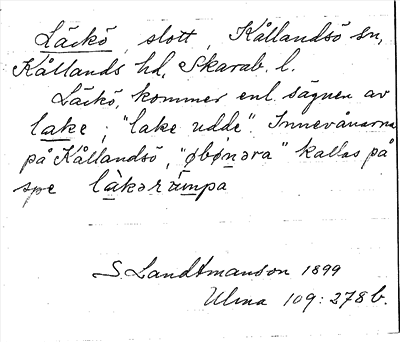 Läckö, slott, Kållandsö sn,
Kållands hd, Skarab. l.
Läckö, kommer enl. sägnen av
lake; "lake udde". Innevånarna
på Kållandsö, "øbønəra" kallas på
spe làkəràmpa
S. Landtmanson 1899
Ulma 109:278 b.